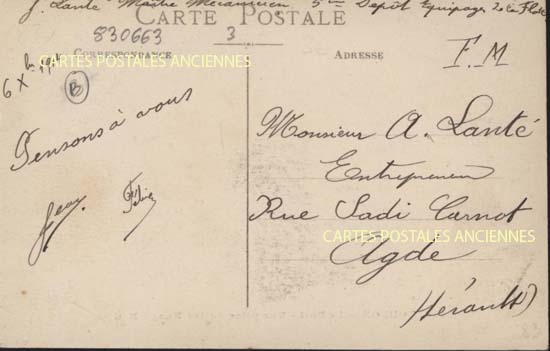 J. Lanté Maître Mécanicien 5ème Dépôt Equipages de la Flotte
CARTE POSTALE
830663
3
CORRESPONDANCE
ADRESSE
F. M
CARTES POSTALES ANCIENNES
6 Xbre
B
Pensons à vous
Jean.
Monsieur A. Lanté
Entrepreneur
Rue Sadi Carnot
CARTES POSTALES ANCIENNES
Agde
(Hérault)
83